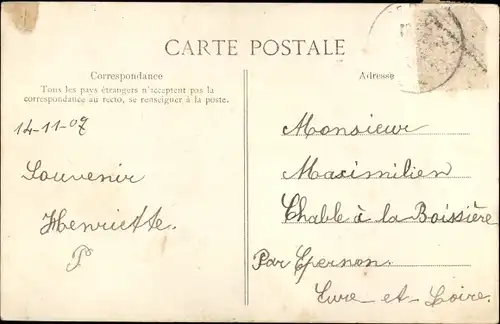 CARTE POSTALE
Correspondance
Tous les pays étrangers n'acceptent pas la
correspondance au recto, se renseigner à la poste.
14-11-07
Souvenir
Henriette.
P
Adresse
Monsieur
Maximilien
Chable à la Boissière
Par Epernon.
Eure-et-Loire.